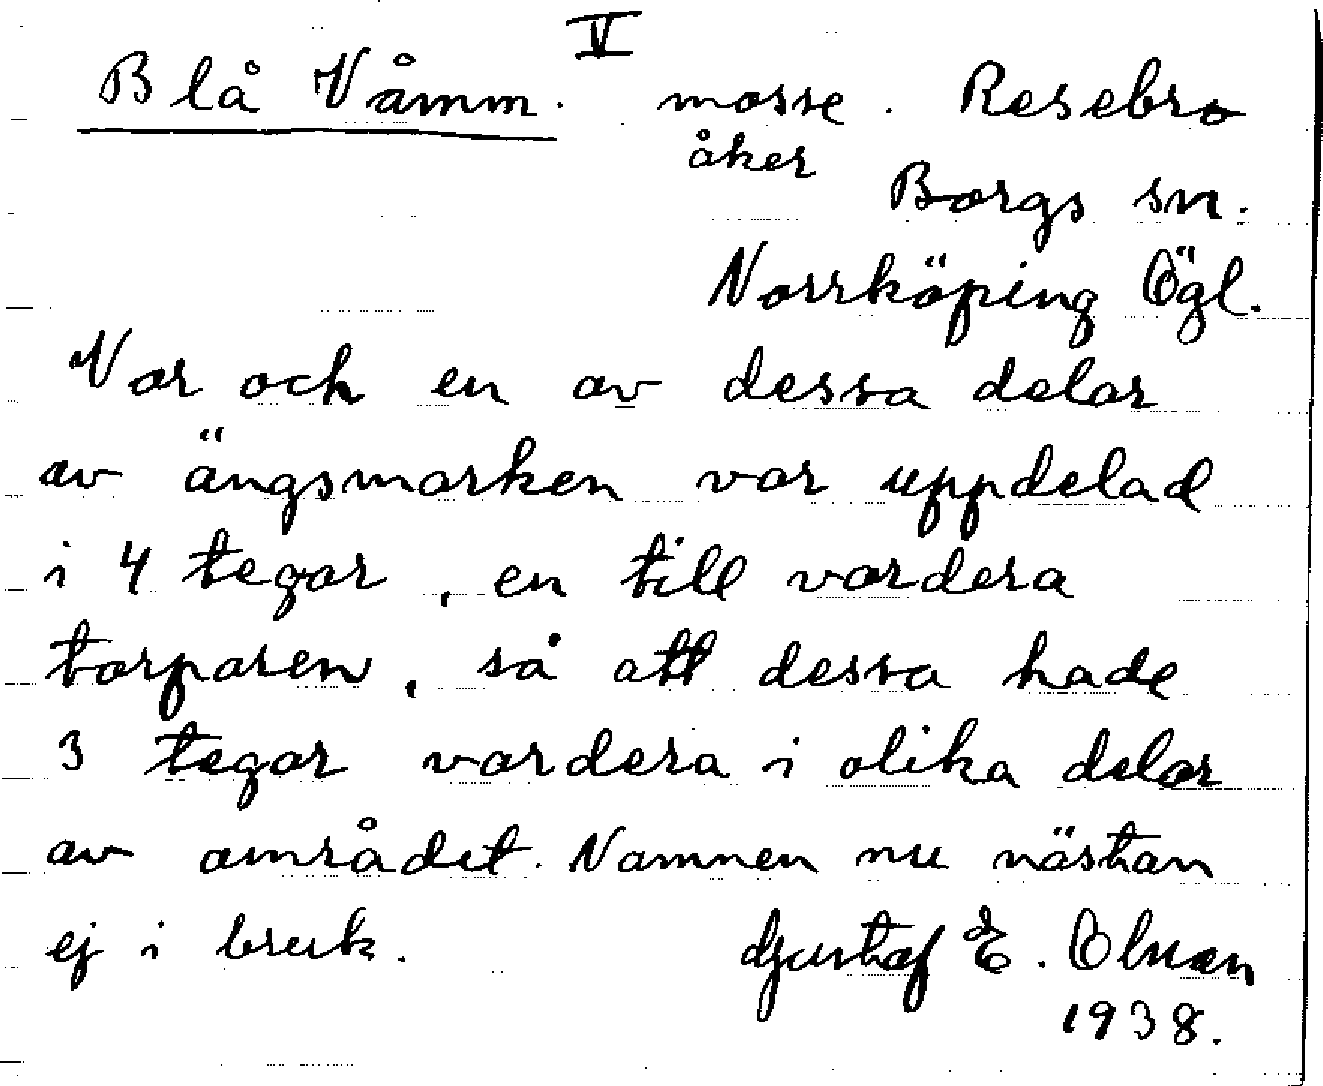 V
Blå Våmm. mosse. Resebro
åker
Borgs sn.
Norrköping Ögl.
Var och en av dessa delar
av ängsmarken var uppdelad
i 4 tegar, en till vardera
torparen, så att dessa hade
3 tegar vardera i olika delar
av området. Namnen nu nästan
ej i bruk. Gustaf E. Olsson
1938.